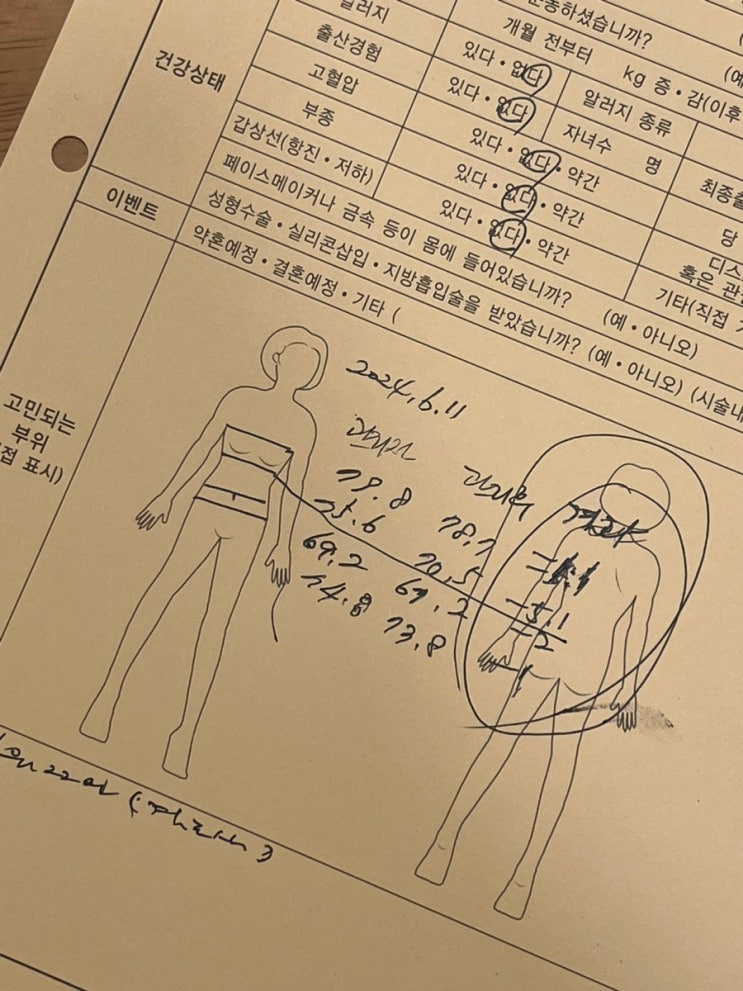 운동하셨습니까?
알러지 개월 전부터 kg 증・감(이후
건강상태
출산경험 있다・없다 알러지 종류
고혈압 있다・없다 자녀수 명
부종 있다・없다・약간
갑상선(항진・저하) 있다・없다・약간
있다・없다・약간
페이스메이커나 금속 등이 몸에 들어있습니까? (예・아니오)
성형수술・실리콘삽입・지방흡입술을 받았습니까? (예・아니오) (시술내
이벤트 약혼예정・결혼예정・기타 (
당
디스
혹은 관
기타(직접
고민되는
부위
표시)
2024.6.11
관리전 관리후 결과
79.8 78.7
75.6 70.5 -5.1
69.2 67.2 -2
74.8 73.8 -1